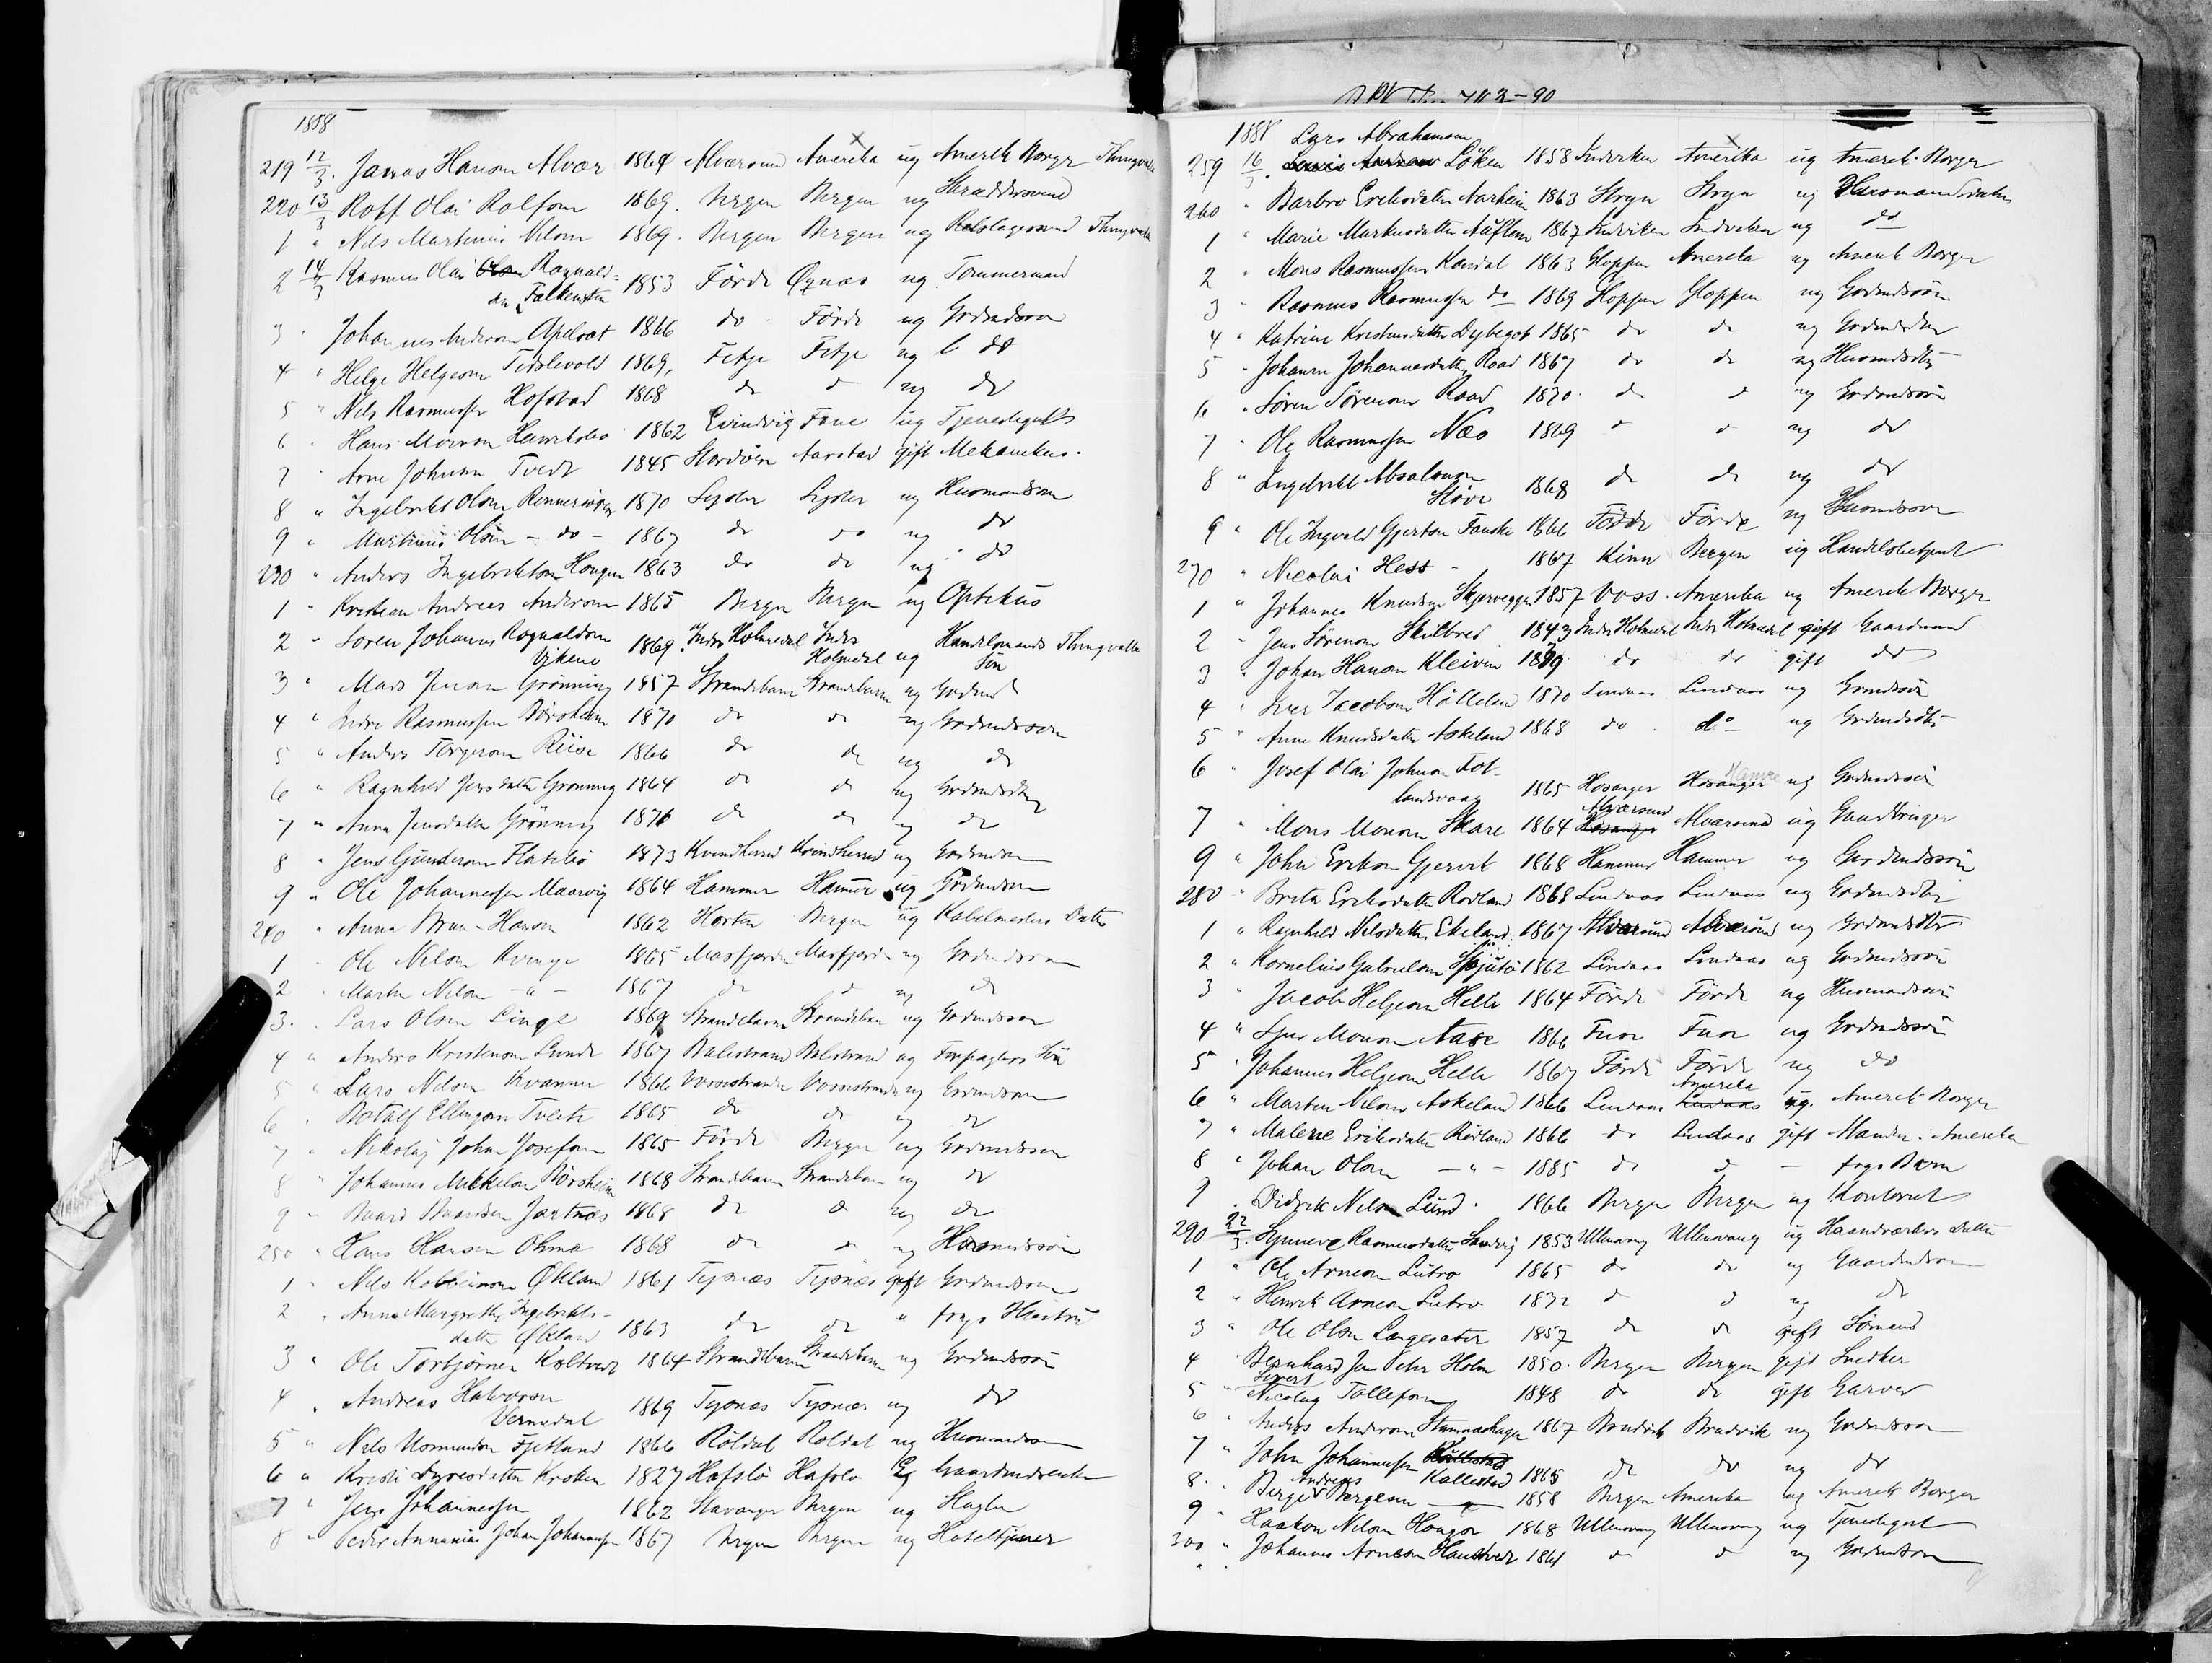 1888
219 12/3. Jonas Hanson Alvær 1864 Alværsund Amerika ug Amerik Borger Thingvalla
220 13/3 Rolf Olai Rolfson 1869. Bergen Bergen ug Skræddersvend
1 " Nils Martinus Nilson 1869. Bergen Bergen ug Rebslagersvend Thingvalla
2 14/3 Rasmus Olai Ragnald-
sen Falkensten 1853 Förde ug Tømmermand
3 " Johannes Anderson Apelset 1866 do Förde ug Grdmdsøn
4 " Helge Helgeson 1869, Fitje Fitje ug do
5 " Nils Rasmussen Hofstad 1868 do do ug do
6 " Hans Monson 1862 Evindvig Fane ug Tjenestegut
7 " Arne Johnson Tvedt 1845 Stordöen Aarstad gift Mekanikus.
8 " Ingebrikt Olson 1870 Lyster Lyster ug Husmandsøn
9 " Martinus Olson - do - 1867 do do ug do
230 " Anders Ingebriktson Haugen 1863 do do ug do
1 " Kristian Andreas Anderson 1865 Bergen Bergen ug Optikus
2 " Søren Johannes Ragnaldson
Vikene 1869. Indre Holmedal Indre
Holmedal ug Handelsmands Søn Thingvalla
3 " Mads Jenson Grønning 1857 Strandebarm Strandebarm ug Grdmd
4 " Endre Rasmussen Börsheim 1870 do do ug Grdmdsson
5 " Anders Torgerson Riise 1866 do do ug do
6 " Ragnhild Jensdatter Grønning 1864 do do ug Grdmdsdtr
7 " Anna Jensdatter Grønning 1876 do do ug do
8 " Jens Gunderson Flatebø 1873 Kvindherred Kvindherred ug Grdmdsøn
9 " Ole Johannessen Maarvig 1864 Hammer Hammer ug Grdmdsøn
240 " Anna Brun-Hanson 1862 Horten Bergen ug Kabelmesters Datter
1 " Ole Nilson Kvinge 1865 Masfjorden Masfjorden ug Grdmdsson
2 " Martin Nilson - " - 1867 do do ug do
3. " Lars Olson Linge 1869 Strandebarm Strandebarm ug Grdmdsson
4 " Anders Kristenson Lunde 1867 Balestrand Balestrand ug Forpagters Søn
5 " Lars Nilson Kvamme 1866 Vossestranden Vossestranden ug Grdmdsson
6 " Botolf Ellingson Tveite 1865 do do ug do
7 " Nikolaj Johan Josefson 1865 Förde Bergen ug Grdmdsson
8 " Johannes Mikkelson Börsheim 1868 Strandebarm Strandebarm ug do
9 " Baard Baardson Jartnæs 1868 do do ug do
250 " Hans Hanson Ohma 1868 do do ug Husmdsson
1 " Nils Økland 1861 Tysnæs Tysnæs gift Grdmdsson
2 " Anna Margrethe Ingebrikts-
datter Økland 1863 do do " frgs Hustru
3 " Ole Torbjørnsen Koltveit 1864 Strandebarm Strandebarm ug Grdmdssön
4 " Andreas Halvorson
Vernedal 1869 Tysnæs Tysnæs ug do
5 " Nils Fjetland 1866 Röldal Röldal ug Husmandsøn
6 " Kristi Kroken 1827 Hafslo Hafslo Eg Gaardmdsenke
7 " Jens Johannessen 1862 Stavanger Bergen ug Slagter
8 " Peder Annanias Johan Johannessen 1867 Bergen Bergen ug Hoteltjener
1888 Lars Abrahamson
259 16/3. Löken 1858 Indviken Amerika ug Amerik. Borger
260 " Barbro Eriksdatter Aarheim 1863 Stryn Stryn ug Husmandsdatter
1 " Marie Markusdatter Auflem 1867 Indviken Indviken ug do
2 " Mons Rasmussen Kandal 1863 Gloppen Amerika ug Amerik Borger
3 " Rasmus Rasmussen do 1869 Gloppen Gloppen ug Grdmdssön
4 " Katrine Kristensdatter 1865 do do ug Grdmdsdtr
5 " Johanne Johannesdatter Raad 1867 do do ug Husmdsdtr
6 " Søren Sørenson Raad 1870 do do ug Grdmdssön
7 " Ole Rasmussen Næs 1869 do do ug do
8 " Ingebrikt Absalonson
Støve 1868 do do ug do
9 " Ole Ingvald Gjertson Fauske 1866 Förde Förde ug Husmdsson
270 " Nicolai Hess - 1867 Kinn Bergen ug Handelsbetjent
1 " Johannes Knudsen Skjervegge 1857 Voss. Amerika ug Amerik Borger
2 " Jens Sörenson Skilbred 1843 Indre Holmedal Indre Holmedal gift Gaardmand
3 " Johan Hanson Kleivin 1839 do do gift do
4 " Iver Jacobson Hölleland 1870 Lindaas Lindaas ug Grmdssön
5 " Anne Knudsdatter Askeland 1868 do do ug Grdmdsdtr
6 " Josef Olai Johnson Fot-
landsvaag 1865 Hosanger Hosanger Hamre ug Grdmdssön
7 " Mons Monson Skare 1864 Hosanger Alværsund Alværsund ug Gaardbruger
9 " John Erikson Gjervik 1868 Hammer Hammer ug Grdmdssön
280 " Brita Eriksdatter Rödland 1868 Lindaas Lindaas ug Grdmdsdtr
1 " Ragnhild Nilsdatter Eikeland 1867 Alværsund Alværsund ug Grdmdsdtr
2 " Kornelius Gabrielson Spjutø 1862 Lindaas Lindaas ug Grdmdssön
3 " Jacob Helgeson Helle 1864 Förde Förde ug Husmandssön
4 " Mons Monson Aase 1866 Fuse Fuse ug Grdmdssön
5 " Johannes Helgeson Helle 1867 Förde Förde ug do
6 " Marten Nilson Askeland 1866 Lindaas Lindaas Amerika ug. Amerik Borger
7 " Malene Eriksdatter Rödland 1866 do Lindaas gift Manden i Amerika
8 " Johan Olson - " - 1885 do do - frgs Barn
9 " Didrik Nilson Lund. 1866 Bergen Bergen ug Kontorist
290 22/3. Synneve Rasmusdatter Sandvig 1853 Ullensvang Ullensvang ug Haandværkers Datter
1 " Ole Arneson Lutro 1865 do do ug Gaardmdsøn
2 " Henrik Arneson Lutro 1872 do do ug do
3 " Ole Olson Langesæter 1857 do do gift Sömand
4 " Bernhard Jens Peter Holm 1850. Bergen Bergen gift Snedker
5 " Nicolay Sivert Tollefsen 1848 do do gift Garver
6 " Anders Anderson 1867 Bruvik Bruvik ug Grdmdsson
7 " John Johannessen Kallestad
Kallestad 1865 do do ug do
8. " Birger Andreas Birgeson 1858 Bergen Amerika ug Amerik Borger
9 " Haakon Nilson Haugse 1868 Ullensvang Ullensvang ug Tjenestegut
300 " Johannes Arneson Haustveit 1861 do do ug Grdmdsøn